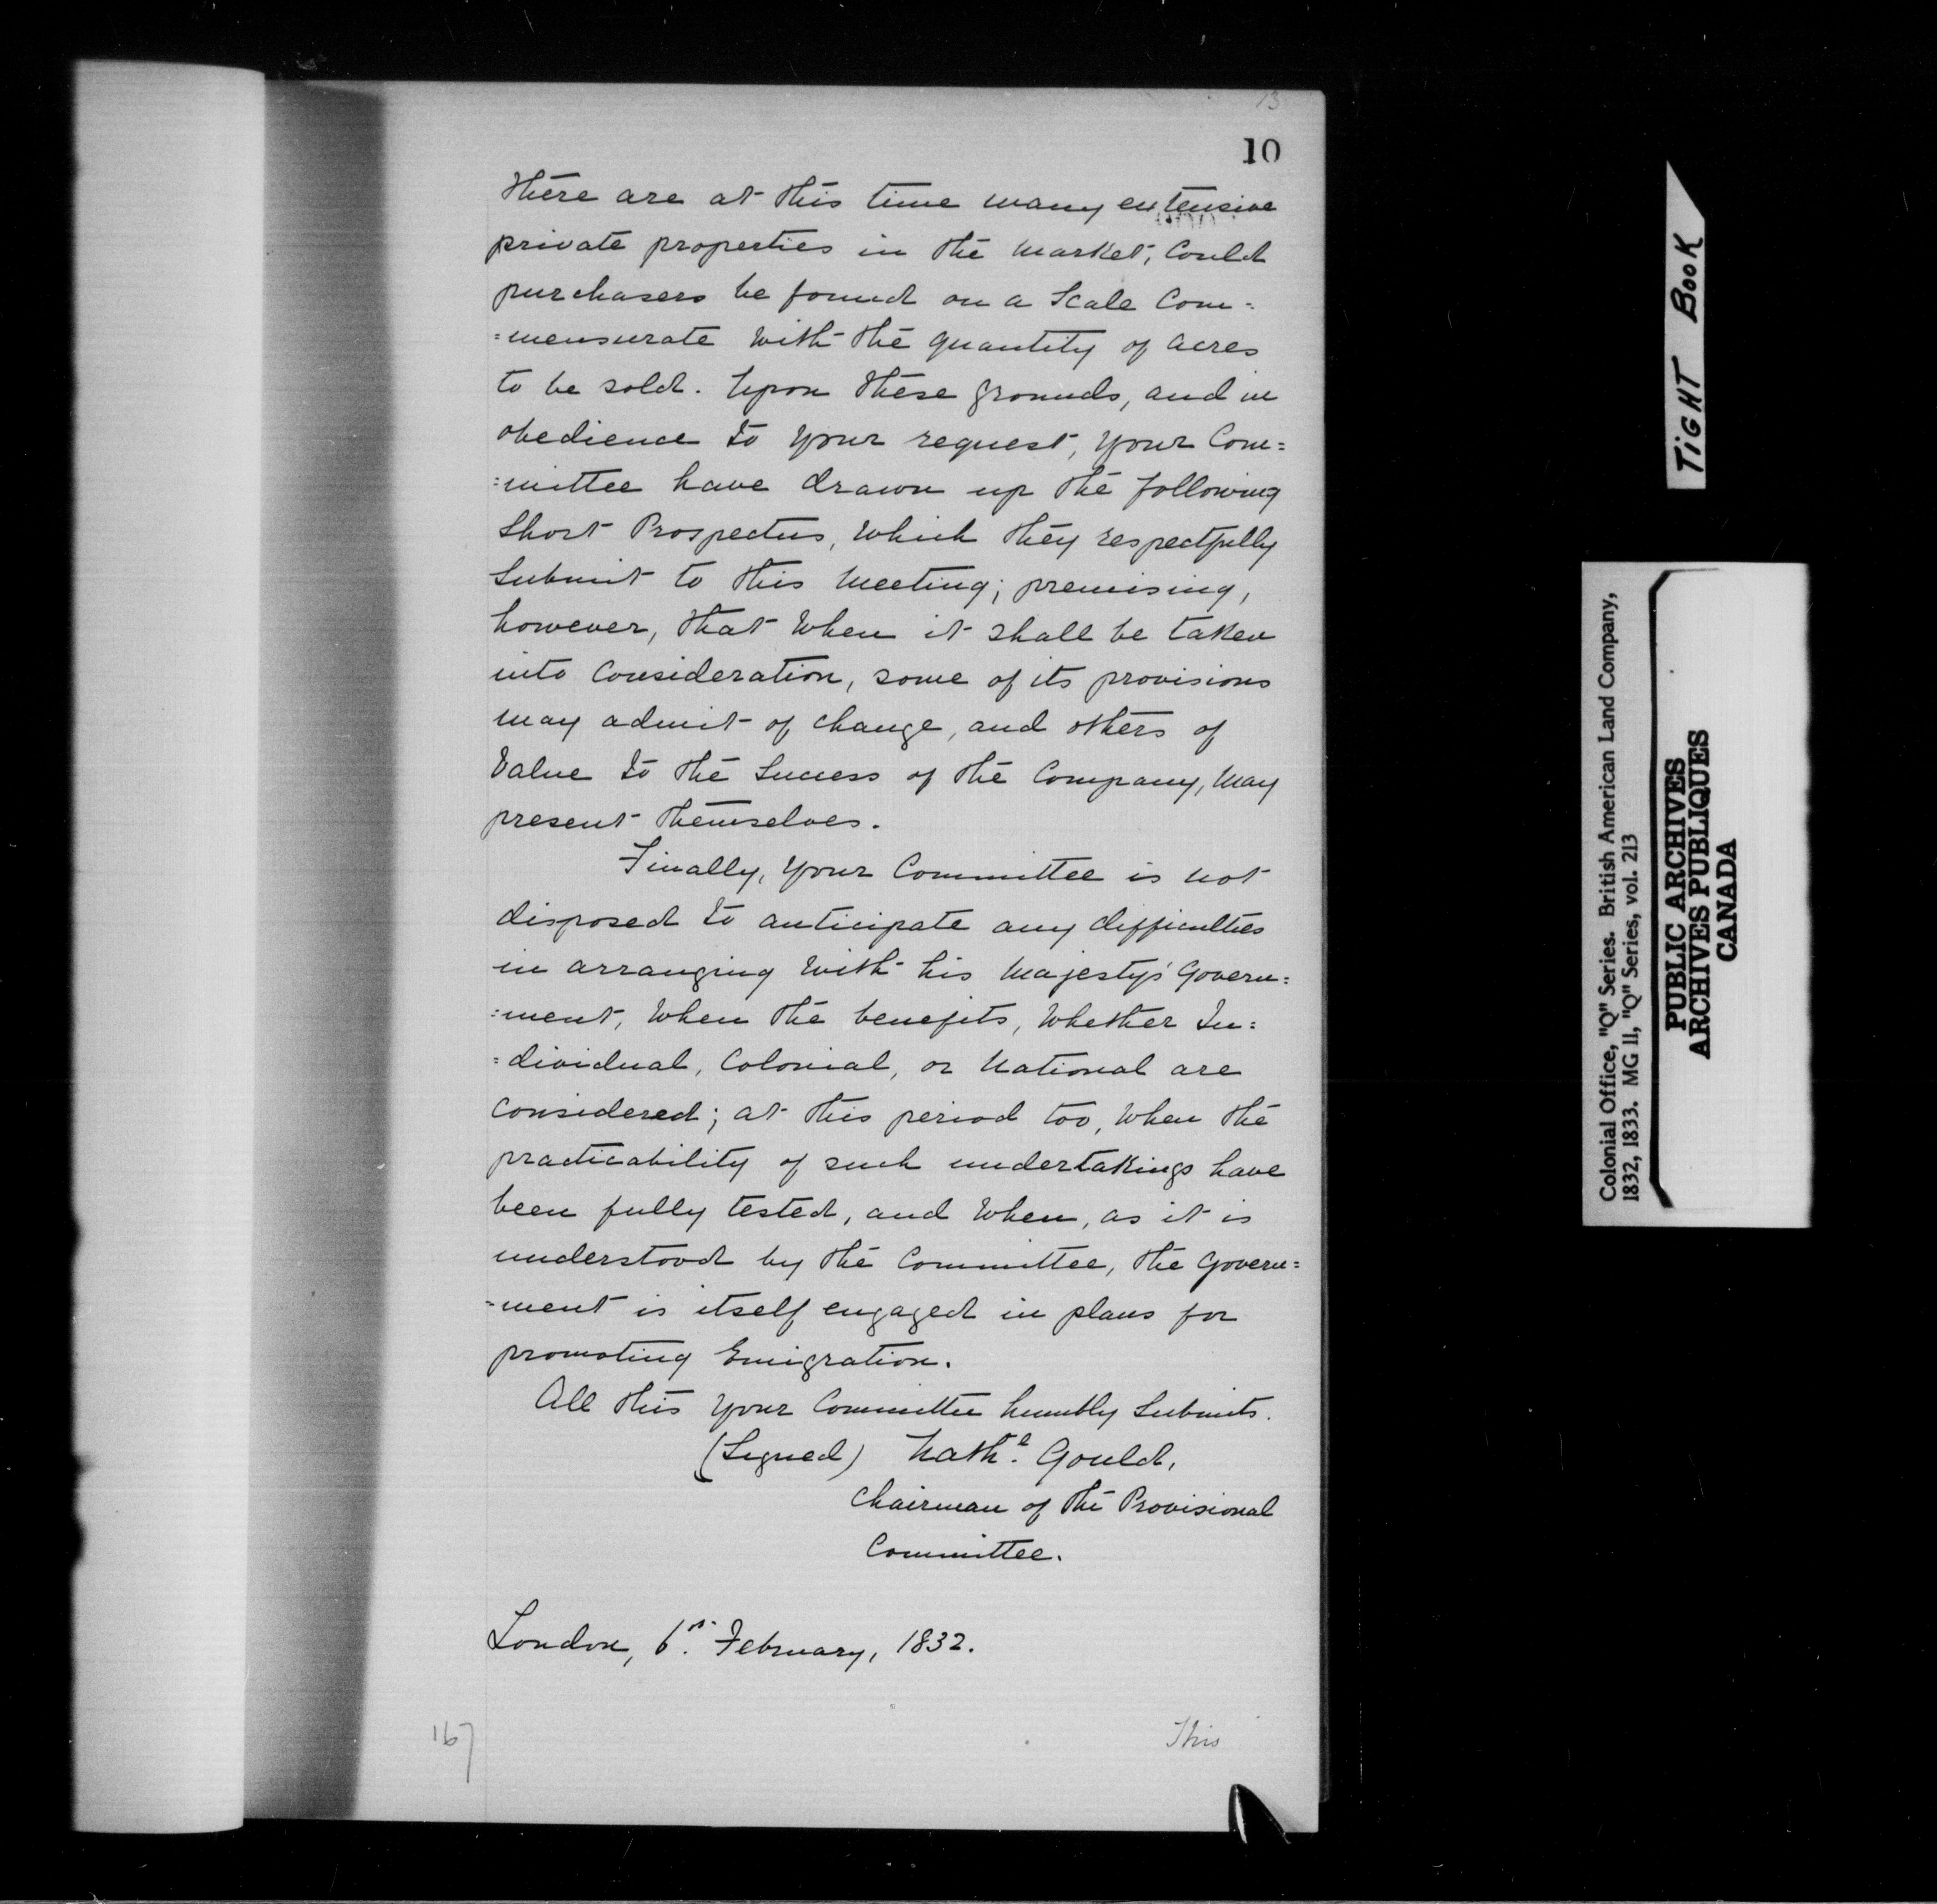 13
10
there are at this time many extensive
private properties in the market, Could
purchasers be found on a Scale Com=
=mensurate with the quantity of acres
to be sold. Upon these grounds, and in
obedience to your request, your Com=
=mittee have drawn up the following
Short Prospectus, which they respectfully
Submit to this Meeting; premising,
however, that when it shall be taken
into Consideration, some of its provisions
may admit of change, and others of
Value to the Success of the Company, may
present themselves.
Finally, your Committee is not
disposed to anticipate any difficulties
in arranging with his Majesty's Govern=
=ment, when the benefits, whether In=
=dividual, Colonial, or National are
Considered; at this period too, when the
practicability of such undertakings have
been fully tested, and when, as it is
understood by the Committee, the Govern=
=ment is itself engaged in plans for
promoting Emigration.
All this your Committee humbly Submits.
(Signed) Nathl. Gould,
Chairman of the Provisional
Committee.
London, 6th. February, 1832.
167
This
TIGHT BOOK
Colonial Office, "Q" Series. British American Land Company,
1832, 1833. MG 11, "Q" Series, vol. 213
PUBLIC ARCHIVES
ARCHIVES PUBLIQUES
CANADA